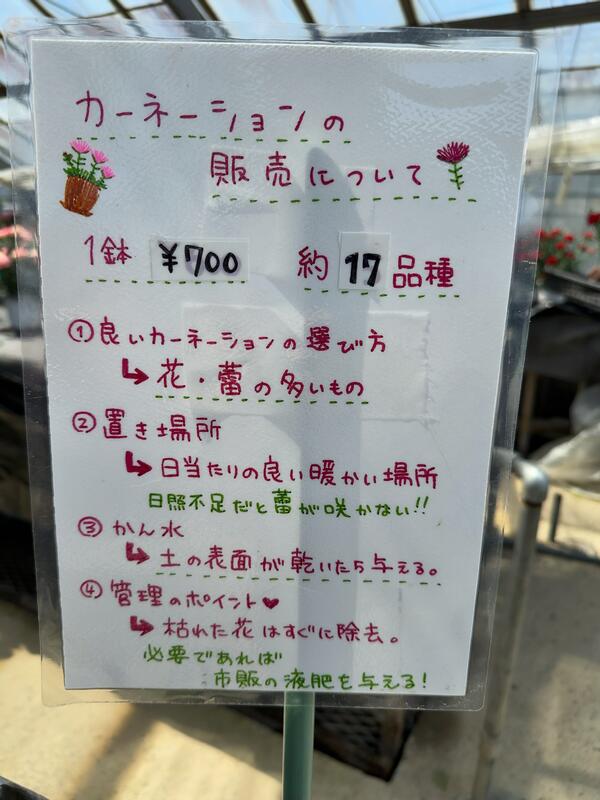 カーネーションの
販売について
1鉢 ¥700 約17品種
①良いカーネーションの選び方
↳花・蕾の多いもの
②置き場所
↳日当たりの良い暖かい場所
日照不足だと蕾が咲かない!!
③かん水
↳土の表面が乾いたら与える。
④管理のポイント♥
↳枯れた花はすぐに除去。
必要であれば
市販の液肥を与える!